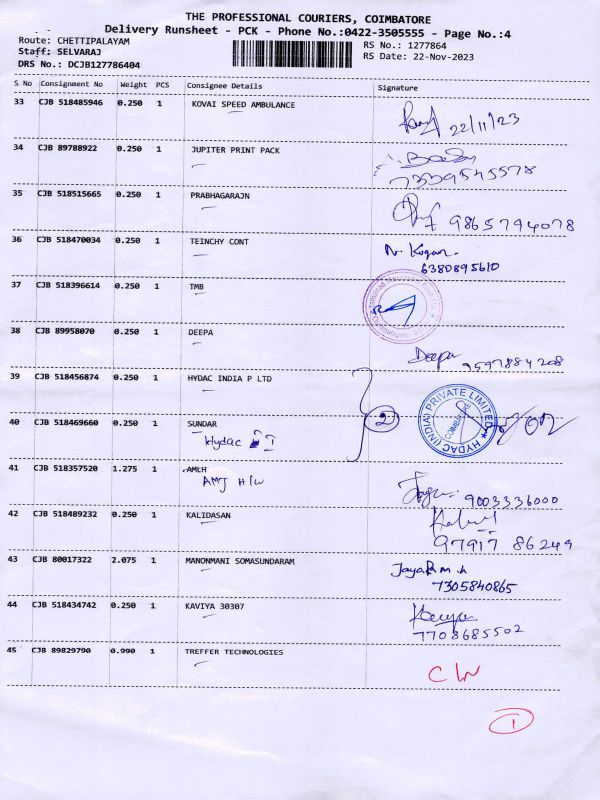 THE PROFESSIONAL COURIERS, COIMBATORE
Delivery Runsheet - PCK - Phone No.:0422-3505555 - Page No.:4
Route: CHETTIPALAYAM RS No.: 1277864
Staff: SELVARAJ RS Date: 22-Nov-2023
DRS No.: DCJB127786404
S No Consignment No Weight PCS Consignee Details Signature
33 CJB 518485946 0.250 1 KOVAI SPEED AMBULANCE
22/11/23
34 CJB 89788922 0.250 1 JUPITER PRINT PACK
7339545578
35 CJB 518515665 0.250 1 PRABHAGARAJN
9865794078
36 CJB 518470034 0.250 1 TEINCHY CONT
6380895610
37 CJB 518396614 0.250 1 TMB
38 CJB 89958070 0.250 1 DEEPA
Deepa 9597884208
39 CJB 518456874 0.250 1 HYDAC INDIA P LTD
HYDAC (INDIA) PRIVATE LIMITED
40 CJB 518469660 0.250 1 SUNDAR
2
Hydac
41 CJB 518357520 1.275 1 AMLH
AMJ H/W
9003336000
42 CJB 518489232 0.250 1 KALIDASAN
97917 86249
43 CJB 80017322 2.075 1 MANONMANI SOMASUNDARAM
7305840865
44 CJB 518434742 0.250 1 KAVIYA 30307
7708685502
45 CJB 89829790 0.990 1 TREFFER TECHNOLOGIES
1